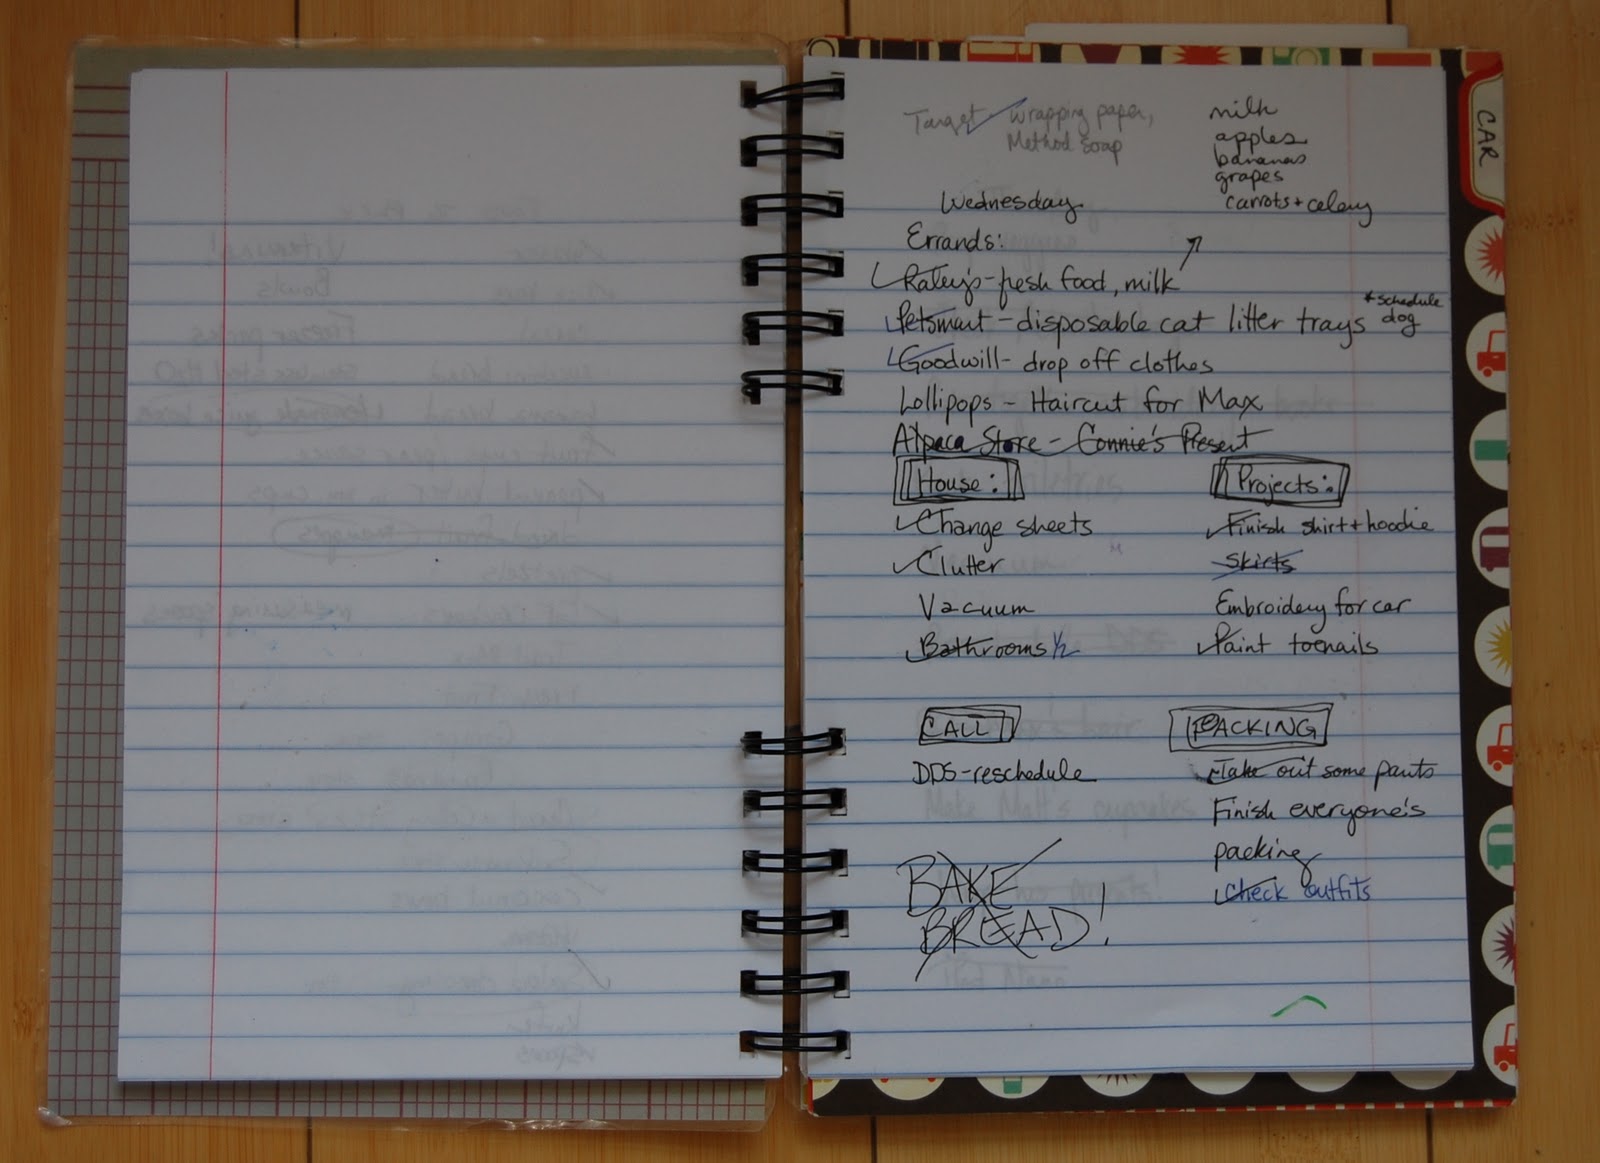 Target - wrapping paper,
Method soap
milk
apples
bananas
grapes
carrots + celery
CAR
Wednesday
Errands:
Raley's - fresh food, milk
Petsmart - disposable cat litter trays *schedule dog
Goodwill - drop off clothes
Lollipops - Haircut for Max
Alpaca Store - Connie's Present
House:
Change sheets
Clutter
Vacuum
Bathrooms 1/2
Projects:
Finish shirt + hoodie
skirts
Embroidery for car
Paint toenails
CALL
DDS - reschedule
PACKING
Take out some pants
Finish everyone's
packing
check outfits
BAKE
BREAD!